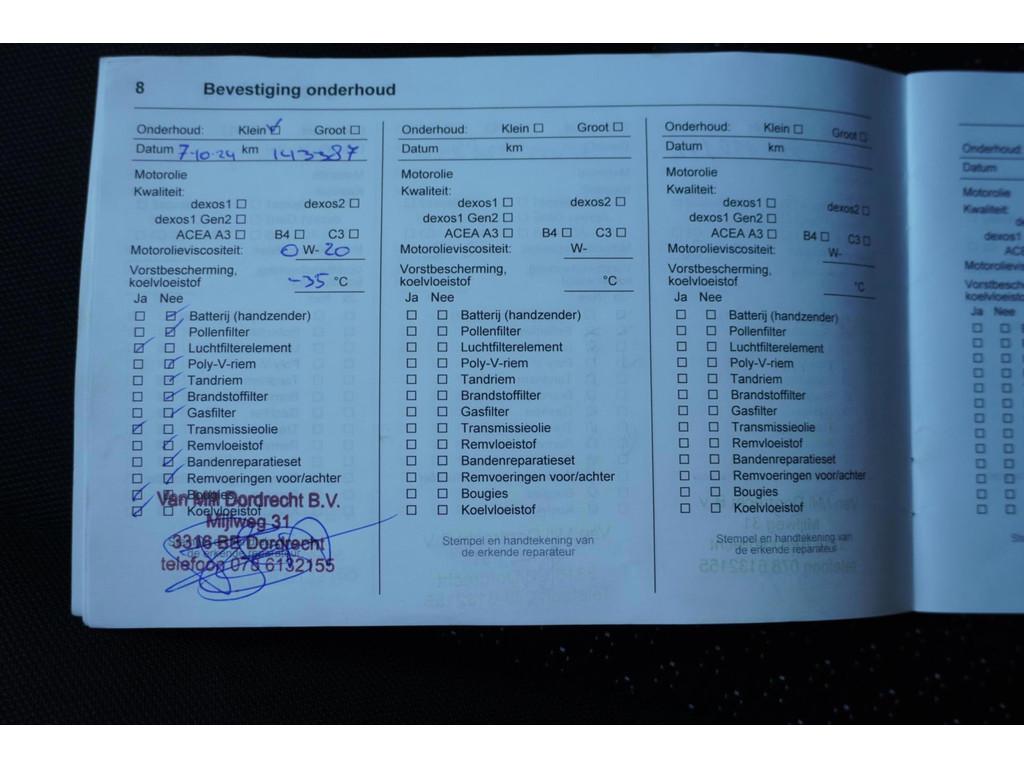 8 Bevestiging onderhoud
Onderhoud: Klein Groot
Datum 7-10-24 km 143387
Motorolie
Kwaliteit:
dexos1 dexos2
dexos1 Gen2
ACEA A3 B4 C3
Motorolieviscositeit: 0 W- 20
Vorstbescherming,
koelvloeistof -35 °C
Ja Nee
Batterij (handzender)
Pollenfilter
Luchtfilterelement
Poly-V-riem
Tandriem
Brandstoffilter
Gasfilter
Transmissieolie
Remvloeistof
Bandenreparatieset
Remvoeringen voor/achter
Bougies
Koelvloeistof
Van Mill Dordrecht B.V.
Mijlweg 31
3316 BE Dordrecht
de erkende reparateur
telefoon 078 6132155
Onderhoud: Klein Groot
Datum km
Motorolie
Kwaliteit:
dexos1 dexos2
dexos1 Gen2
ACEA A3 B4 C3
Motorolieviscositeit: W-
Vorstbescherming,
koelvloeistof °C
Ja Nee
Batterij (handzender)
Pollenfilter
Luchtfilterelement
Poly-V-riem
Tandriem
Brandstoffilter
Gasfilter
Transmissieolie
Remvloeistof
Bandenreparatieset
Remvoeringen voor/achter
Bougies
Koelvloeistof
Stempel en handtekening van
de erkende reparateur
Onderhoud: Klein Groot
Datum km
Motorolie
Kwaliteit:
dexos1 dexos2
dexos1 Gen2
ACEA A3 B4 C3
Motorolieviscositeit: W-
Vorstbescherming,
koelvloeistof °C
Ja Nee
Batterij (handzender)
Pollenfilter
Luchtfilterelement
Poly-V-riem
Tandriem
Brandstoffilter
Gasfilter
Transmissieolie
Remvloeistof
Bandenreparatieset
Remvoeringen voor/achter
Bougies
Koelvloeistof
Stempel en handtekening van
de erkende reparateur
Onderhoud:
Datum
Motorolie
Kwaliteit:
dexos1
Ja Nee